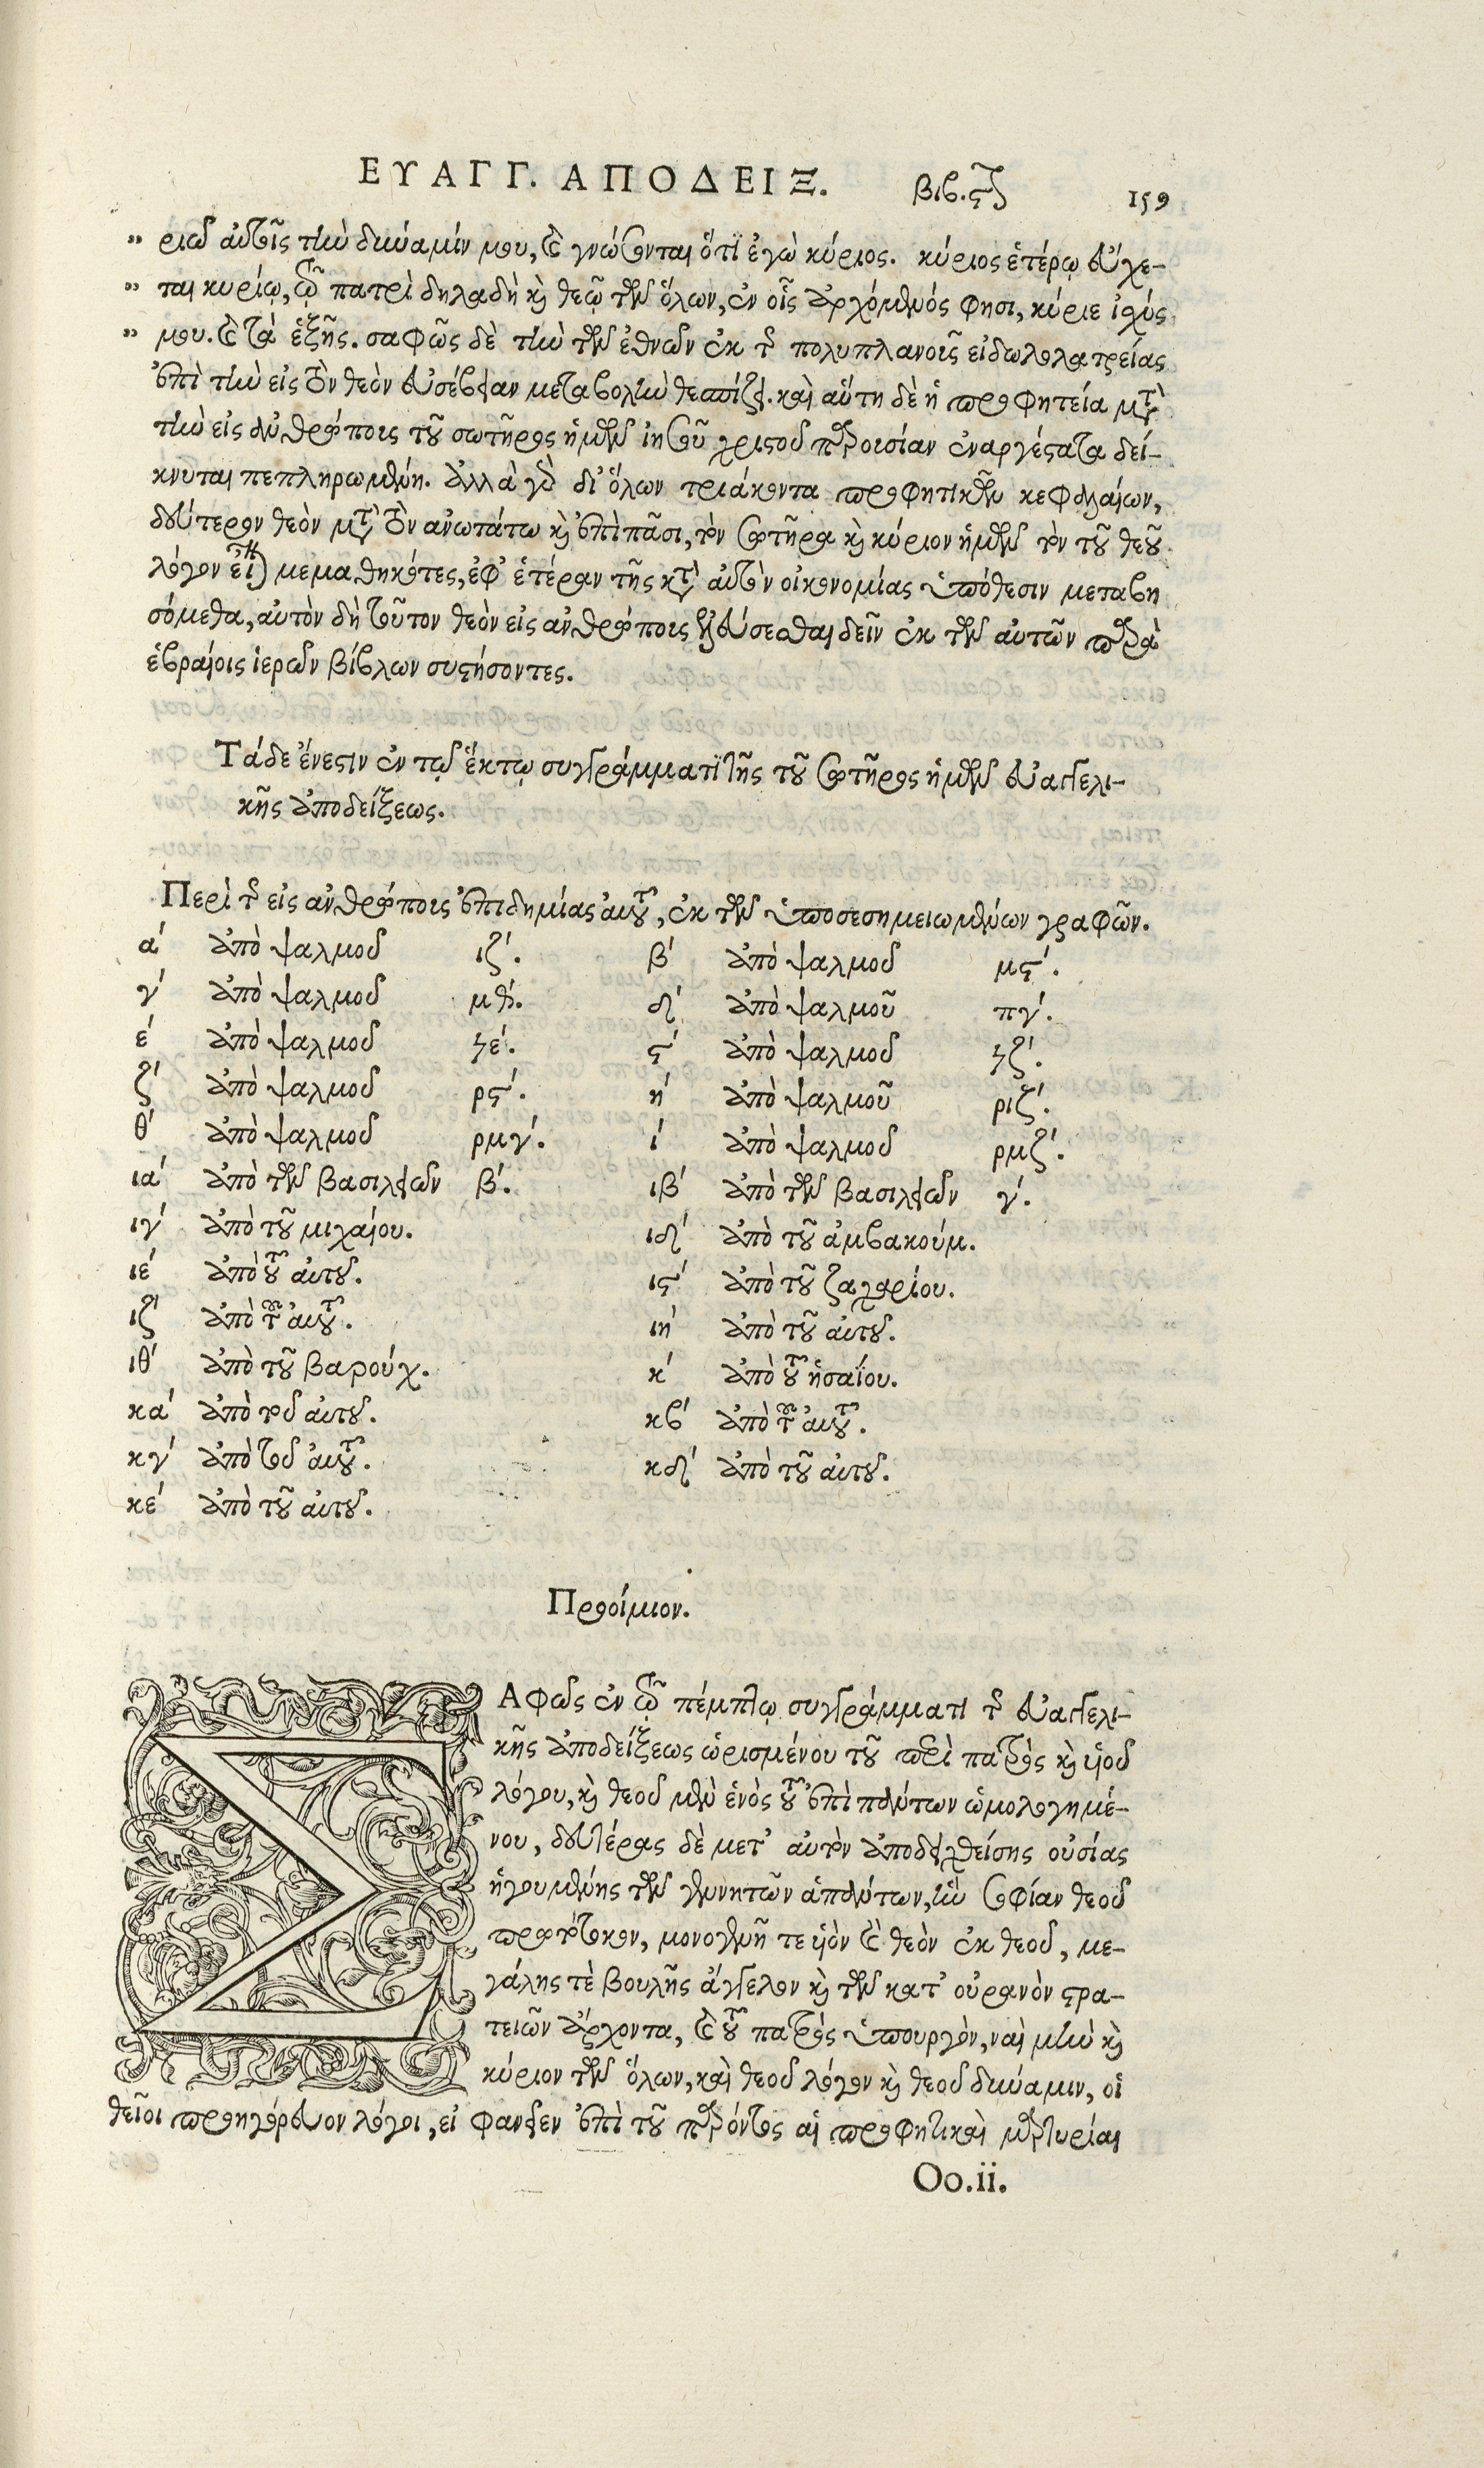 ΕΥΑΓΓ. ΑΠΟΔΕΙΞ. βιβ. ϛ 159
ριῶ αὐτοῖς τὴν δύναμίν μου, καὶ γνώσονται ὅτι ἐγὼ κύριος. κύριος ἑτέρῳ εὔχε-
ται κυρίῳ, τῷ πατρὶ δηλαδὴ καὶ θεῷ τῶν ὅλων, ἐν οἷς ἀρχόμενός φησι, κύριε ἰσχύς
μου. καὶ τὰ ἑξῆς. σαφῶς δὲ τὴν τῶν ἐθνῶν ἐκ τῆς πολυπλανοῦς εἰδωλολατρείας
ἐπὶ τὴν εἰς τὸν θεὸν εὐσέβειαν μεταβολὴν θεσπίζει. καὶ αὕτη δὲ ἡ προφητεία μετὰ
τὴν εἰς ἀνθρώπους τοῦ σωτῆρος ἡμῶν ἰησοῦ χριστοῦ παρουσίαν ἐναργέστατα δεί-
κνυται πεπληρωμένη. ἀλλὰ γὰρ δι' ὅλων τριάκοντα προφητικῶν κεφαλαίων,
δεύτερον θεὸν μετὰ τὸν ἀνωτάτω καὶ ἐπὶ πᾶσι, τὸν σωτῆρα καὶ κύριον ἡμῶν τὸν τοῦ θεοῦ
λόγον εἶναι μεμαθηκότες, ἐφ' ἑτέραν τῆς κατὰ αὐτὸν οἰκονομίας ὑπόθεσιν μεταβη
σόμεθα, αὐτὸν δὴ τοῦτον θεὸν εἰς ἀνθρώπους ἐλεύσεσθαι δεῖν ἐκ τῶν αὐτῶν παρὰ
ἑβραίοις ἱερῶν βίβλων συστήσοντες.
Τάδε ἔνεστιν ἐν τῷ ἕκτῳ συγγράμματι τῆς τοῦ σωτῆρος ἡμῶν εὐαγγελι-
κῆς ἀποδείξεως.
Περὶ τῆς εἰς ἀνθρώπους ἐπιδημίας αὐτοῦ, ἐκ τῶν ὑποσεσημειωμένων γραφῶν.
α´ ἀπὸ ψαλμοῦ ιζ´. β´ ἀπὸ ψαλμοῦ μϛ´.
γ´ ἀπὸ ψαλμοῦ μθ´. δ´ ἀπὸ ψαλμοῦ πγ´.
ε´ ἀπὸ ψαλμοῦ ϟε´. ϛ´ ἀπὸ ψαλμοῦ ϟζ´.
ζ´ ἀπὸ ψαλμοῦ ρϛ´. η´ ἀπὸ ψαλμοῦ ριζ´.
θ´ ἀπὸ ψαλμοῦ ρμγ´. ι´ ἀπὸ ψαλμοῦ ρμζ´.
ια´ ἀπὸ τῶν βασιλειῶν β´. ιβ´ ἀπὸ τῶν βασιλειῶν γ´.
ιγ´ ἀπὸ τοῦ μιχαίου. ιδ´ ἀπὸ τοῦ ἀμβακούμ.
ιε´ ἀπὸ τοῦ αὐτοῦ. ιϛ´ ἀπὸ τοῦ ζαχαρίου.
ιζ´ ἀπὸ τοῦ αὐτοῦ. ιη´ ἀπὸ τοῦ αὐτοῦ.
ιθ´ ἀπὸ τοῦ βαρούχ. κ´ ἀπὸ τοῦ ἡσαΐου.
κα´ ἀπὸ τοῦ αὐτοῦ. κβ´ ἀπὸ τοῦ αὐτοῦ.
κγ´ ἀπὸ τοῦ αὐτοῦ. κδ´ ἀπὸ τοῦ αὐτοῦ.
κε´ ἀπὸ τοῦ αὐτοῦ.
Προοίμιον.
ΣΑφῶς ἐν τῷ πέμπτῳ συγγράμματι τῆς εὐαγγελι-
κῆς ἀποδείξεως ὡρισμένου τοῦ περὶ πατρὸς καὶ υἱοῦ
λόγου, καὶ θεοῦ μὲν ἑνὸς τοῦ ἐπὶ πάντων ὡμολογημέ-
νου, δευτέρας δὲ μετ' αὐτὸν ἀποδειχθείσης οὐσίας
ἡγουμένης τῶν γενητῶν ἁπάντων, ἣν σοφίαν θεοῦ
πρωτότοκον, μονογενῆ τε υἱὸν καὶ θεὸν ἐκ θεοῦ, με-
γάλης τὲ βουλῆς ἄγγελον καὶ τῶν κατ' οὐρανὸν στρα-
τειῶν ἄρχοντα, καὶ τοῦ πατρὸς ὑπουργὸν, ναὶ μὴν καὶ
κύριον τῶν ὅλων, καὶ θεοῦ λόγον καὶ θεοῦ δύναμιν, οἱ
θεῖοι προηγόρευον λόγοι, εἰ φανεῖεν ἐπὶ τοῦ παρόντος αἱ προφητικαὶ μαρτυρίαι
Oo.ii.